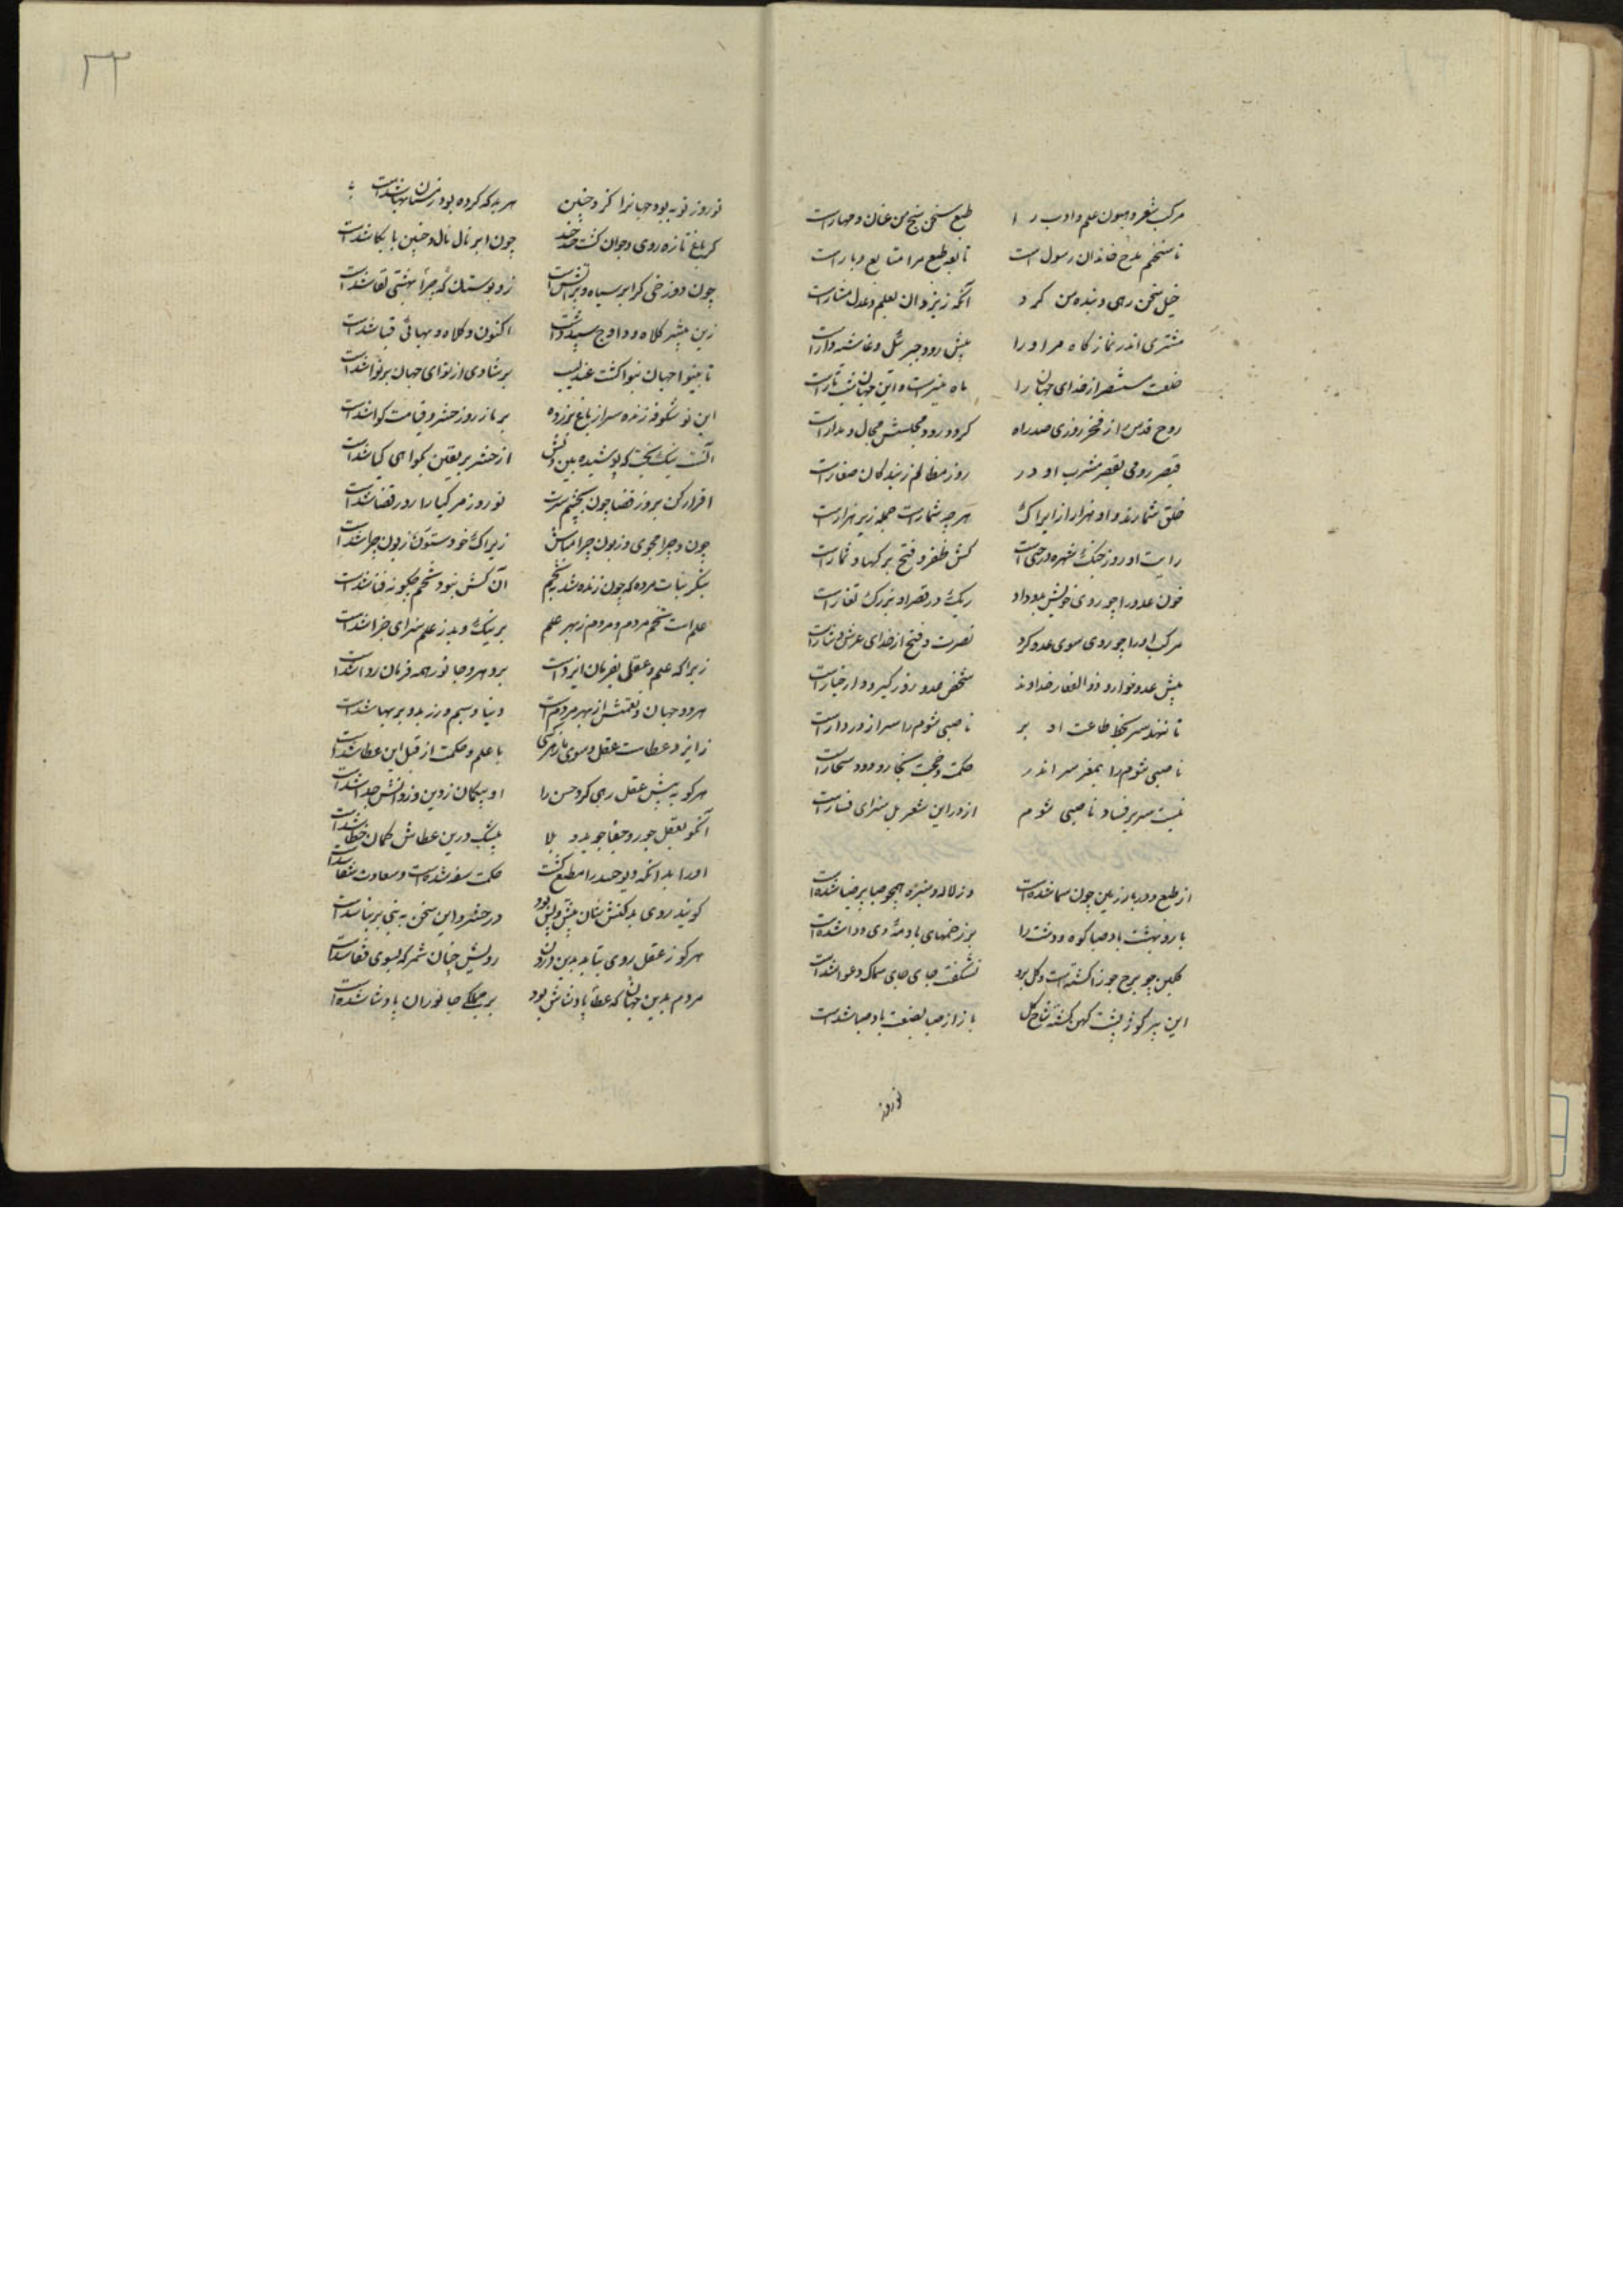 مرکب شعر و هیون علم و ادب را طبع سخن سنج من عنان و مهار است
تا سخنم مدح خاندان رسول است نابغه طبع مرا متابع و یار است
خیل سخن رهی و بنده من کرد آنکه ز یزدان بعلم و عدل مشار است
مشتری اندر نمازگاه مر او را پیش رو و جبرئیل و غاشیه دار است
طلعت مستنصر از خدای جهان را ماه منیر است و این جهان شب تار است
روح قدس را ز فخر روزی صد راه گرد در و مجلسش مجال و مدار است
قیصر رومی بقصر مشرب او در روز مظالم ز بندگان صغار است
خلق شمارند و او هزار ازیراک هرچه شمار است جمله زیر هزار است
رایت او روز جنگ شهره درختی است کش ظفر و فتح برگها و ثمار است
خون عدو را چو روی خویش بدو داد ریگ در قصر او بزرگ تغار است
مرکب او را چو روی سوی عدو کرد نصرت و فتح از خدای عرش نثار است
پیش عدو خوار ذوالفقار خداوند شخص عدو روز گیر و دار خیار است
تا ننهد سر بخط طاعت او بر ناصبی شوم را سر از در دار است
ناصبی شوم را بمغز سر اندر حکمت و حجت بخار و دود شخار است
نیست سر پر فساد ناصبی شوم از در این شعر بل سزای فسار است
از طبع و در بار زمین چون سما شده است وز لاله و سبزه همچو صبا پر ضیا شده است
بار بهشت باد صبا کوه و دشت را بر زخمهای باد مه دی دوا شده است
گلبن چو برج جوزا گشته است و گل برو نشگفت جای جای سماک و عوا شده است
این پیر گوژ پشت کهن گشته شاخ گل باز از صبا بصنعت باد صبا شده است
نوروز
۲۳
نوروز نو به بود جهانرا کزو چنین هر بد که کرده بود زمستان بها شده است
گر باغ تازه روی و جوان گشت خند خند چون ابر نال نال و چنین با بکا شده است
چون دوزخی گر ابر سیاه و پر آتش است زو بوستان گه چرا بهشتی لقا شده است
زین پیشتر کلاه و دواج سپید داشت اکنون و کلاه و بهائی قبا شده است
تا بینوا جهان بنوا گشت عندلیب بر شادی از نوای جهان بر نوا شده است
این نو شکوفه زنده سر از باغ برزده بر باز روز حشر و قیامت گوا شده است
آنست نیکبخت که پوشیده بیند از حشر بر یقین بگواهی گیا شده است
اقرار کن بروز قضا چون بچشم سرت نوروز مر گیا را روز قضا شده است
چون و چرا مجوی و زبون چرا مباش زیراک خود ستور زبون چرا شده است
بنگر نبات مرده که چون زنده شد بتخم آن کش نبود تخم چگونه فنا شده است
علم است تخم مردم و مردم ز بهر علم بر نیک و بد ز علم سزای جزا شده است
زیرا که علم و عقل بفرمان ایزد است برو مهر و جانور همه فرمان روا شده است
هر دو جهان و نعمتش از بهر مردم است دیبا و سیم و زر بدو بر بها شده است
ز ایزد عطاست عقل و سوی باز مردمی با علم و حکمت از قبل این عطا شده است
هر کو به پیش عقل رهی کرد حسن را او بیگمان ز دین و ز دانش جدا شده است
آنکو بعقل جور و جفا جوید و بلا بیشک درین عطاش گمان خطا شده است
او را بدانکه دیو حسد را مطیع گشت حکمت سفه شده است و سعادت شقا شده است
گویند روی بدکنش بنان پیش و پس بود در حشر و این سخن به نبی بر بنا شده است
هر کو ز عقل روی بتابد بدین درون رویش چنان شمر که بسوی قفا شده است
مردم بدین جهان که عطا پادشاش بود بر جملگی جانوران پادشا شده است